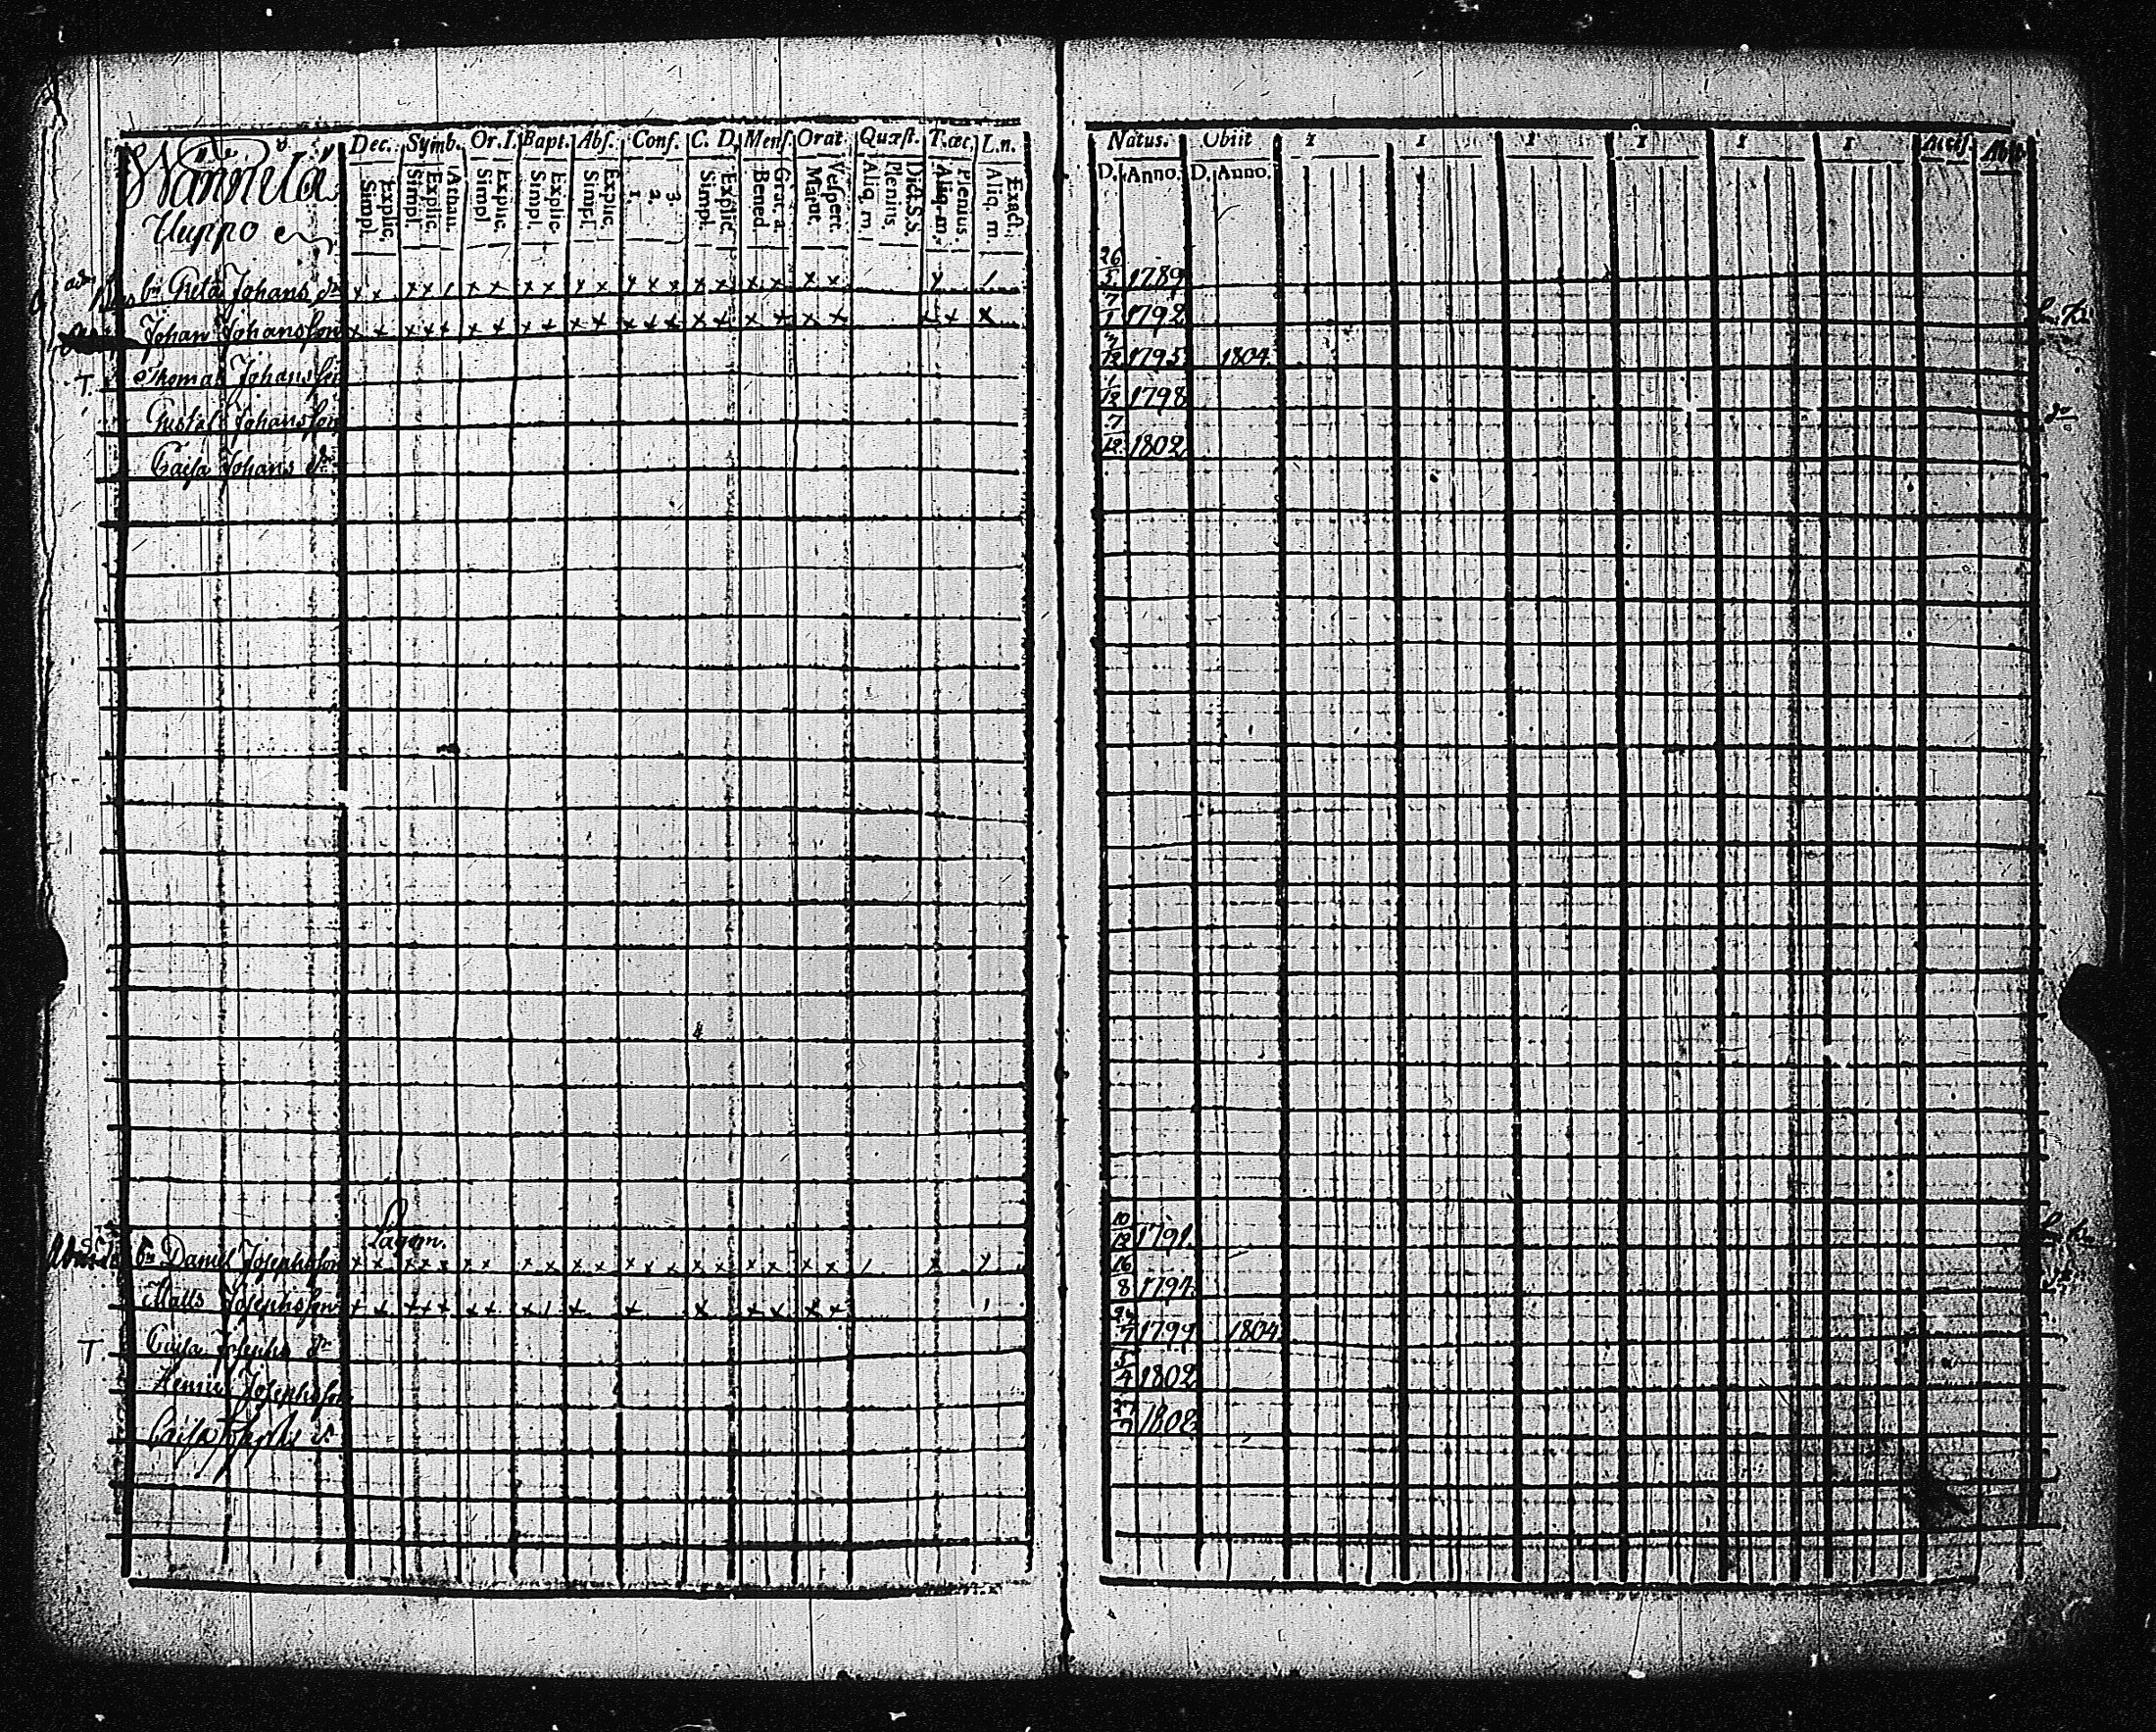 Dec. Symb. Or. I. Bapt. Abs. Conf. C. D. Mens. Orat. Quæst. T. œc. L. n.
Simpl. Explic. Simpl. Explic. Athan. Simpl. Explic. Simpl. Explic. Simpl. Explic. 1. 2. 3. Simpl. Explic. Bened. Grat. a. Matut. Vespert. Aliq. m. Plenius. Dict. S.S. Aliq. m. Plenius. Aliq. m. Exact.
Wännilä
Uuppo
Greta Johans dr x x x x x x x x x x x x x x x x x x x x
Johan Johansson x x x x x x x x x x x x x x x x x x x x x x x
T. Thomas Johansson
Gustaf Johansson
Caisa Johans dr
Lagom.
Daniel Josephsson x x x x x x x x x x x x x x x x x x x x
Matts Josephsson x x x x x x x x x x x x x x x
T. Caisa Josephs dr
Henric Josephsson
Caisa Josephs dr
Natus. Obiit 1 1 1 1 1 1
D. Anno. D. Anno.
26/5 1789
7/1 1792
1795 1804.
1/12 1798
7/12 1802
10/12 1791.
16/8 1794.
1799 1804
5/4 1802
27/7 1802